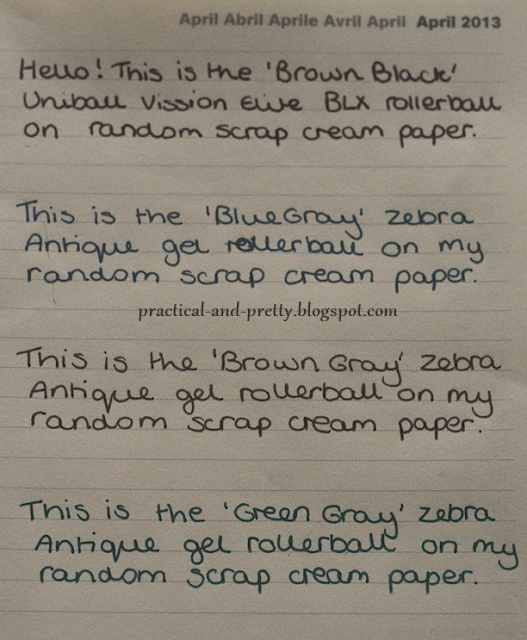 April Abril Aprile Avril April April 2013
Hello! This is the 'Brown Black'
Uniball Vission Elite BLX rollerball
on random scrap cream paper.
This is the 'BlueGray' zebra
Antique gel rollerball on my
random scrap cream paper.
practical-and-pretty.blogspot.com
This is the 'Brown Gray' zebra
Antique gel rollerball on my
random scrap cream paper.
This is the 'Green Gray' zebra
Antique gel rollerball on my
random scrap cream paper.